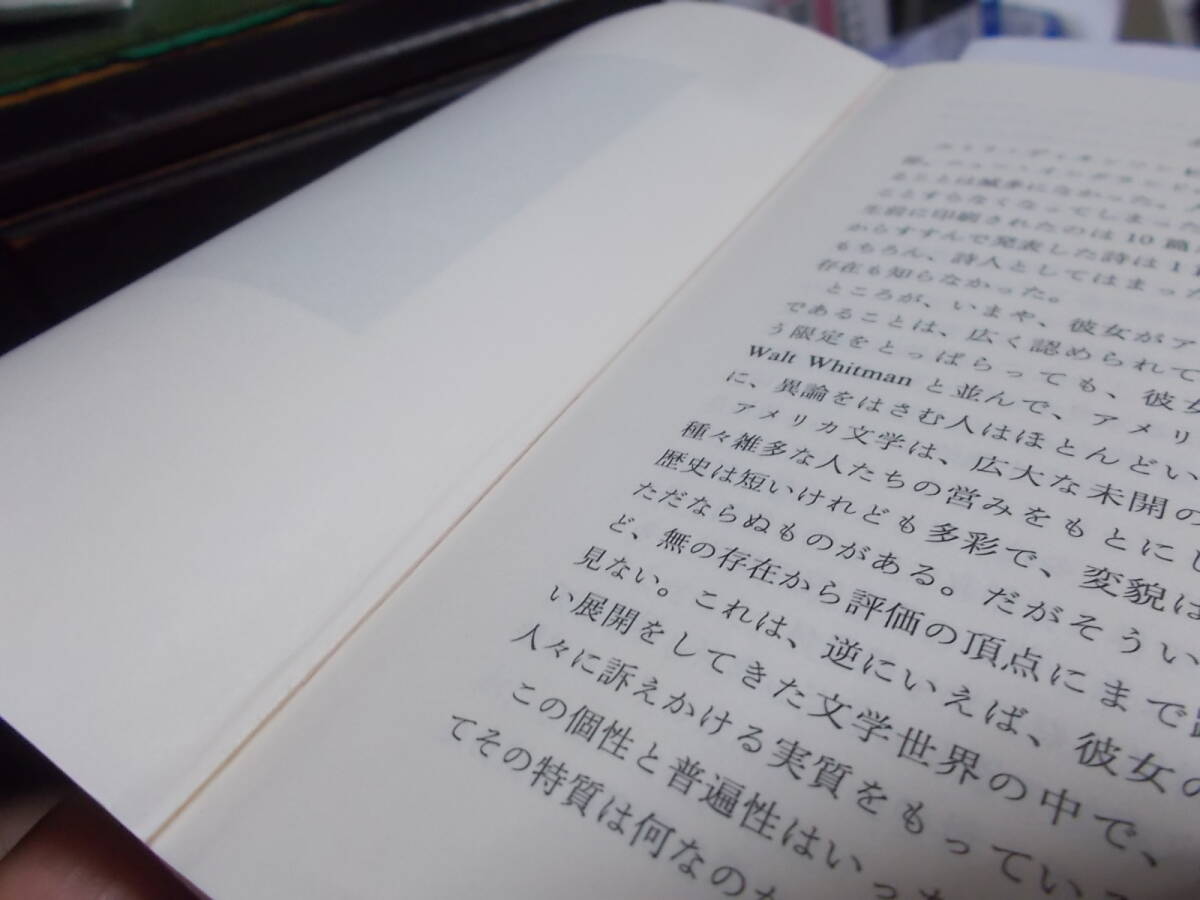 ることは滅多になかった。
ことすらなくなってしまった
生前に印刷されたのは 10 篇
からすすんで発表した詩は 1
ももちろん、詩人としてはまった
存在も知らなかった。
ところが、いまや、彼女がア
であることは、広く認められて
う限定をとっぱらっても、彼女
Walt Whitman と並んで、アメリ
に、異論をはさむ人はほとんどい
アメリカ文学は、広大な未開の
種々雑多な人たちの営みをもとにし
歴史は短いけれども多彩で、変貌は
ただならぬものがある。だがそうい
ど、無の存在から評価の頂点にまで
見ない。これは、逆にいえば、彼女の
い展開をしてきた文学世界の中で、
人々に訴えかける実質をもってい
この個性と普遍性はいった
てその特質は何なのか